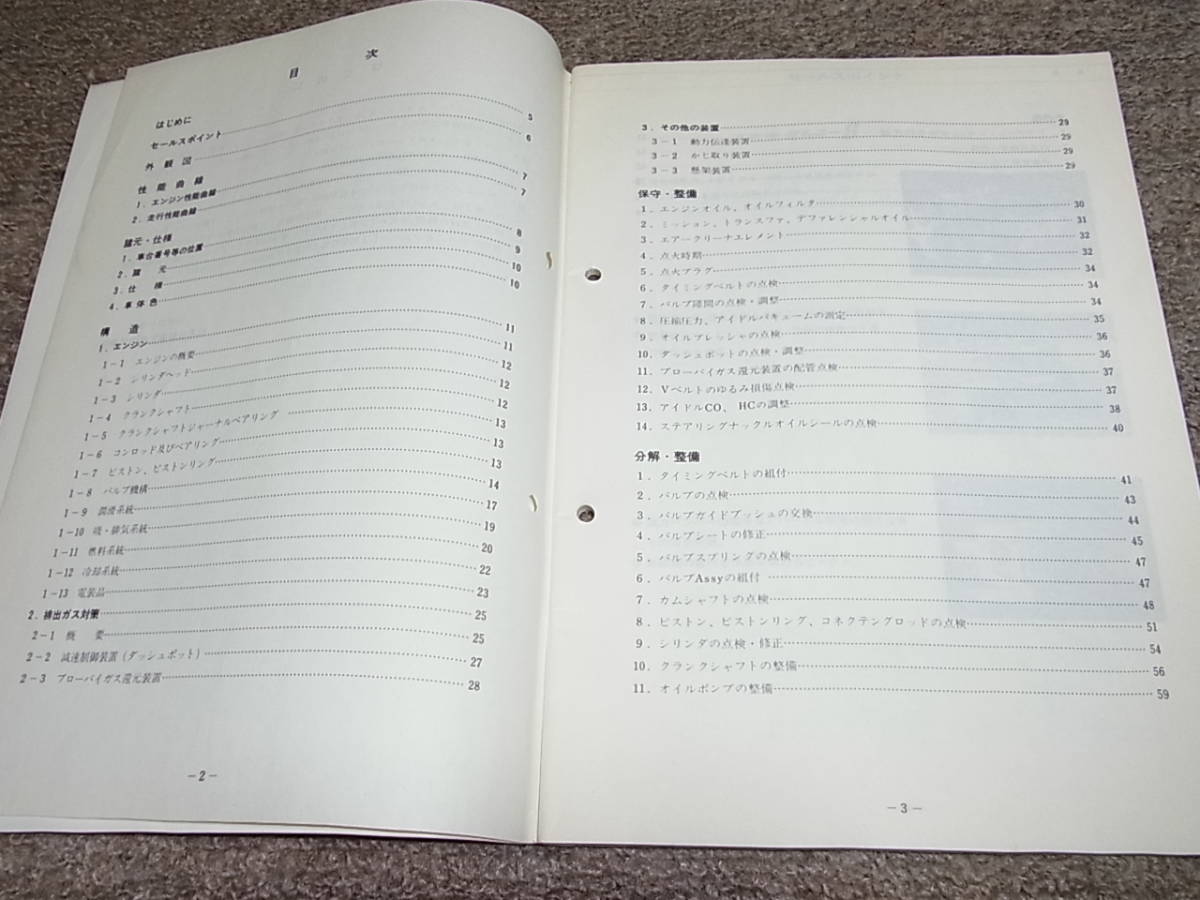 目　次
はじめに 5
セールスポイント 6
外観図
性能曲線 7
1．エンジン性能曲線 7
2．走行性能曲線
諸元・仕様 8
1．車台番号等の位置 9
2．諸　元 10
3．仕　様 10
4．車体色
構　造 11
1．エンジン 11
1－1　エンジンの概要 12
1－2　シリンダヘッド 12
1－3　シリンダ 12
1－4　クランクシャフト 13
1－5　クランクシャフトジャーナルベアリング 13
1－6　コンロッド及びベアリング 13
1－7　ピストン、ピストンリング 14
1－8　バルブ機構 17
1－9　潤滑系統 19
1－10　吸・排気系統 20
1－11　燃料系統 22
1－12　冷却系統 23
1－13　電装品 25
2．排出ガス対策 25
2－1　概　要 27
2－2　減速制御装置（ダッシュポット） 28
2－3　ブローバイガス還元装置
－2－
3．その他の装置 29
3－1　動力伝達装置 29
3－2　かじ取り装置 29
3－3　懸架装置 29
保守・整備
1．エンジンオイル、オイルフィルタ 30
2．ミッション、トランスファ、デファレンシャルオイル 31
3．エアークリーナエレメント 32
4．点火時期 32
5．点火プラグ 34
6．タイミングベルトの点検 34
7．バルブ隙間の点検・調整 34
8．圧縮圧力、アイドルバキュームの測定 35
9．オイルプレッシャの点検 36
10．ダッシュポットの点検・調整 36
11．ブローバイガス還元装置の配管点検 37
12．Vベルトのゆるみ損傷点検 37
13．アイドルCO、HCの調整 38
14．ステアリングナックルオイルシールの点検 40
分解・整備
1．タイミングベルトの組付 41
2．バルブの点検 43
3．バルブガイドブッシュの交換 44
4．バルブシートの修正 45
5．バルブスプリングの点検 47
6．バルブAssyの組付 47
7．カムシャフトの点検 48
8．ピストン、ピストンリング、コネクテングロッドの点検 51
9．シリンダの点検・修正 54
10．クランクシャフトの整備 56
11．オイルポンプの整備 59
－3－